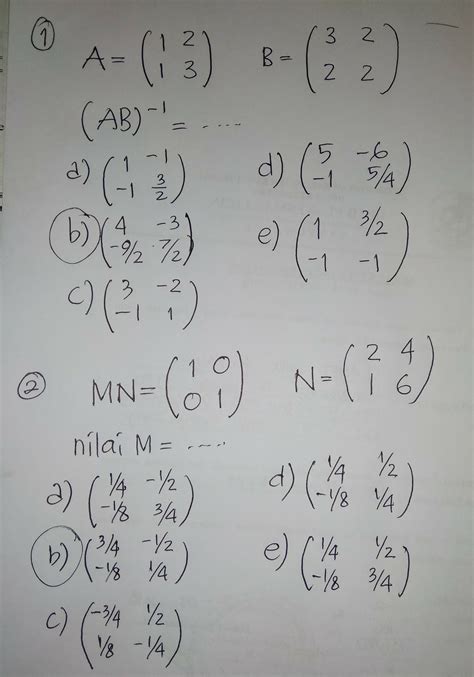 ①
A = (1 2 / 1 3)   B = (3 2 / 2 2)
(AB)⁻¹ = ....
a) (1 -1 / -1 3/2)   d) (5 -6 / -1 5/4)
b) (4 -3 / -9/2 7/2)   e) (1 3/2 / -1 -1)
c) (3 -2 / -1 1)
② MN = (1 0 / 0 1)   N = (2 4 / 1 6)
nilai M = ....
a) (1/4 -1/2 / -1/8 3/4)   d) (1/4 1/2 / -1/8 1/4)
b) (3/4 -1/2 / -1/8 1/4)   e) (1/4 1/2 / -1/8 3/4)
c) (-3/4 1/2 / 1/8 -1/4)